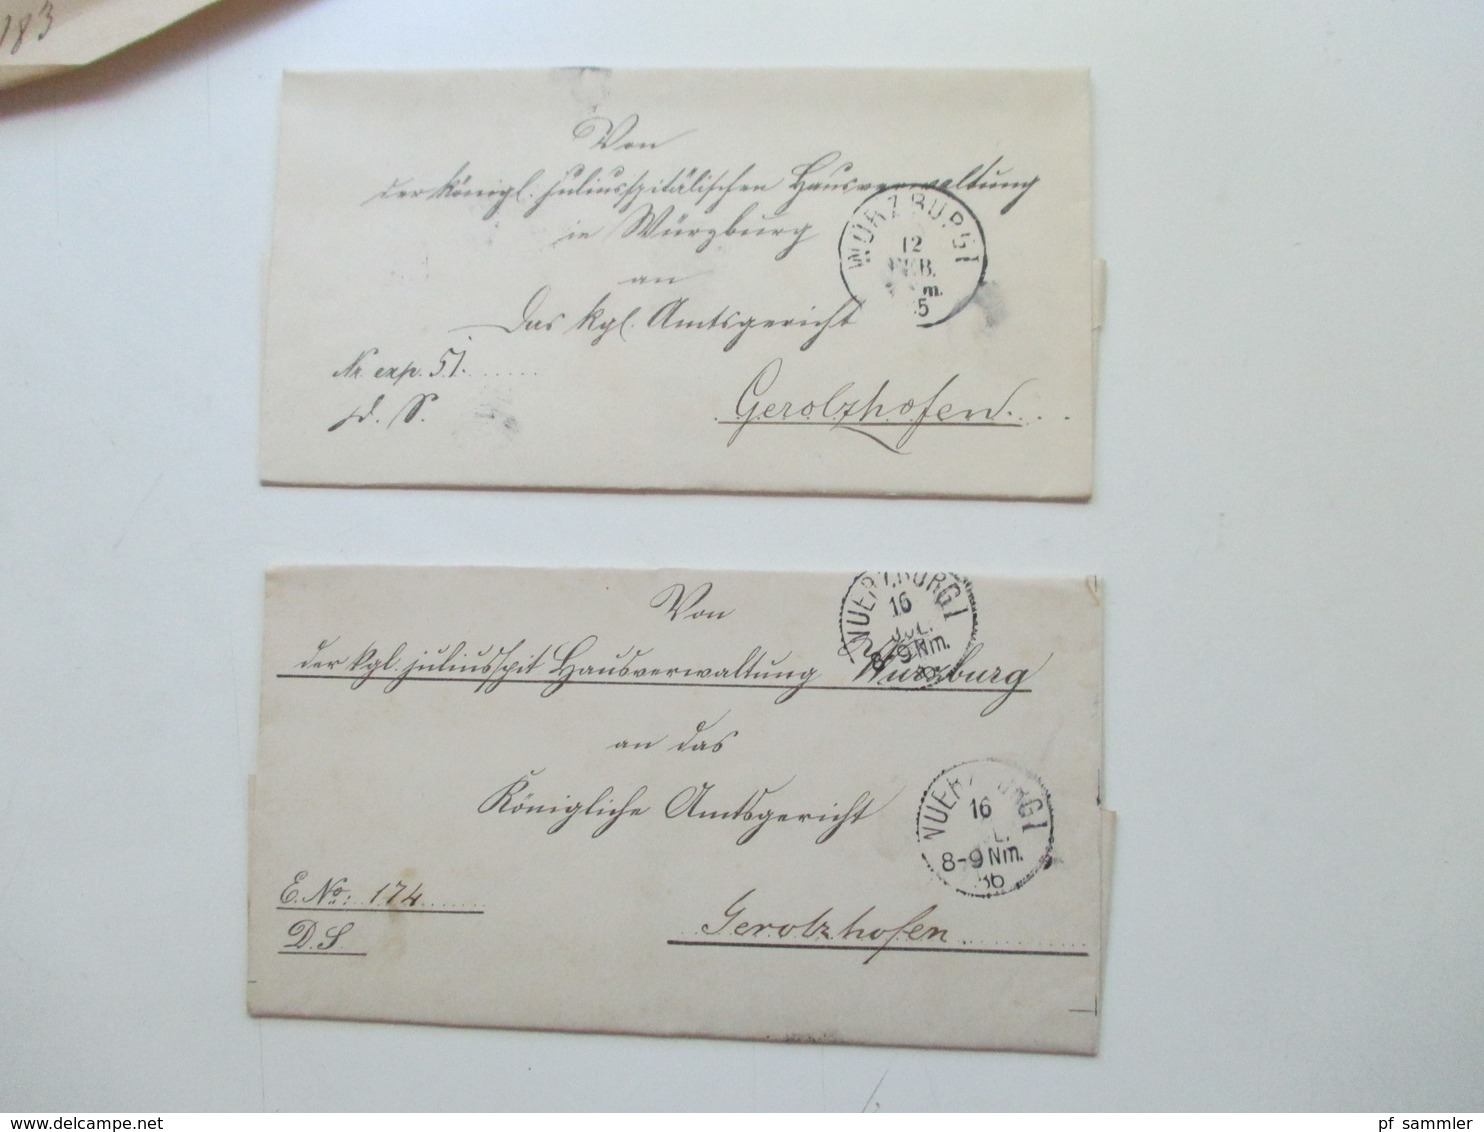 183
Von
der königl. juliusspitälischen Hausverwaltung
in Würzburg
an
Das kgl. Amtsgericht
Nr. exp. 51.
d. S.
Gerolzhofen.
WÜRZBURG I
12
FEB.
Von
der kgl. juliusspit Hausverwaltung Würzburg
an das
Königliche Amtsgericht
E. No: 174
D. S.
Gerolzhofen
WUERZBURG I
16
JUL.
8-9 Nm.
WUERZBURG I
16
JUL.
8-9 Nm.
86
pf sammler